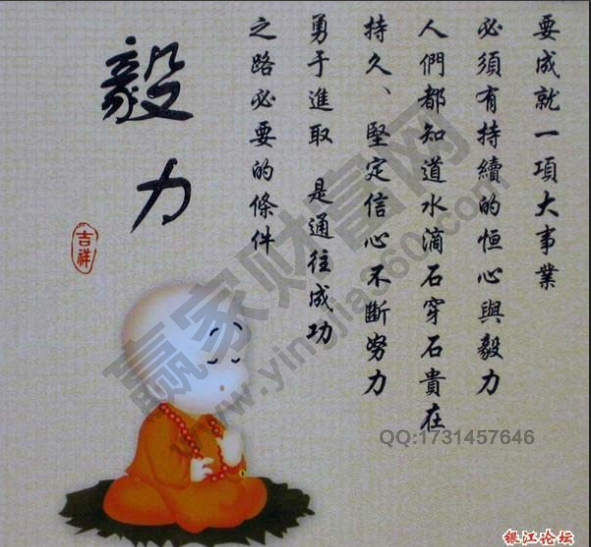 要成就一項大事業
必須有持續的恒心與毅力
人們都知道水滴石穿石貴在
持久、堅定信心不斷努力
勇于進取 是通往成功
之路必要的條件
毅力
吉祥
赢家财富网
www.yingjia360.com
QQ:1731457646
银江论坛